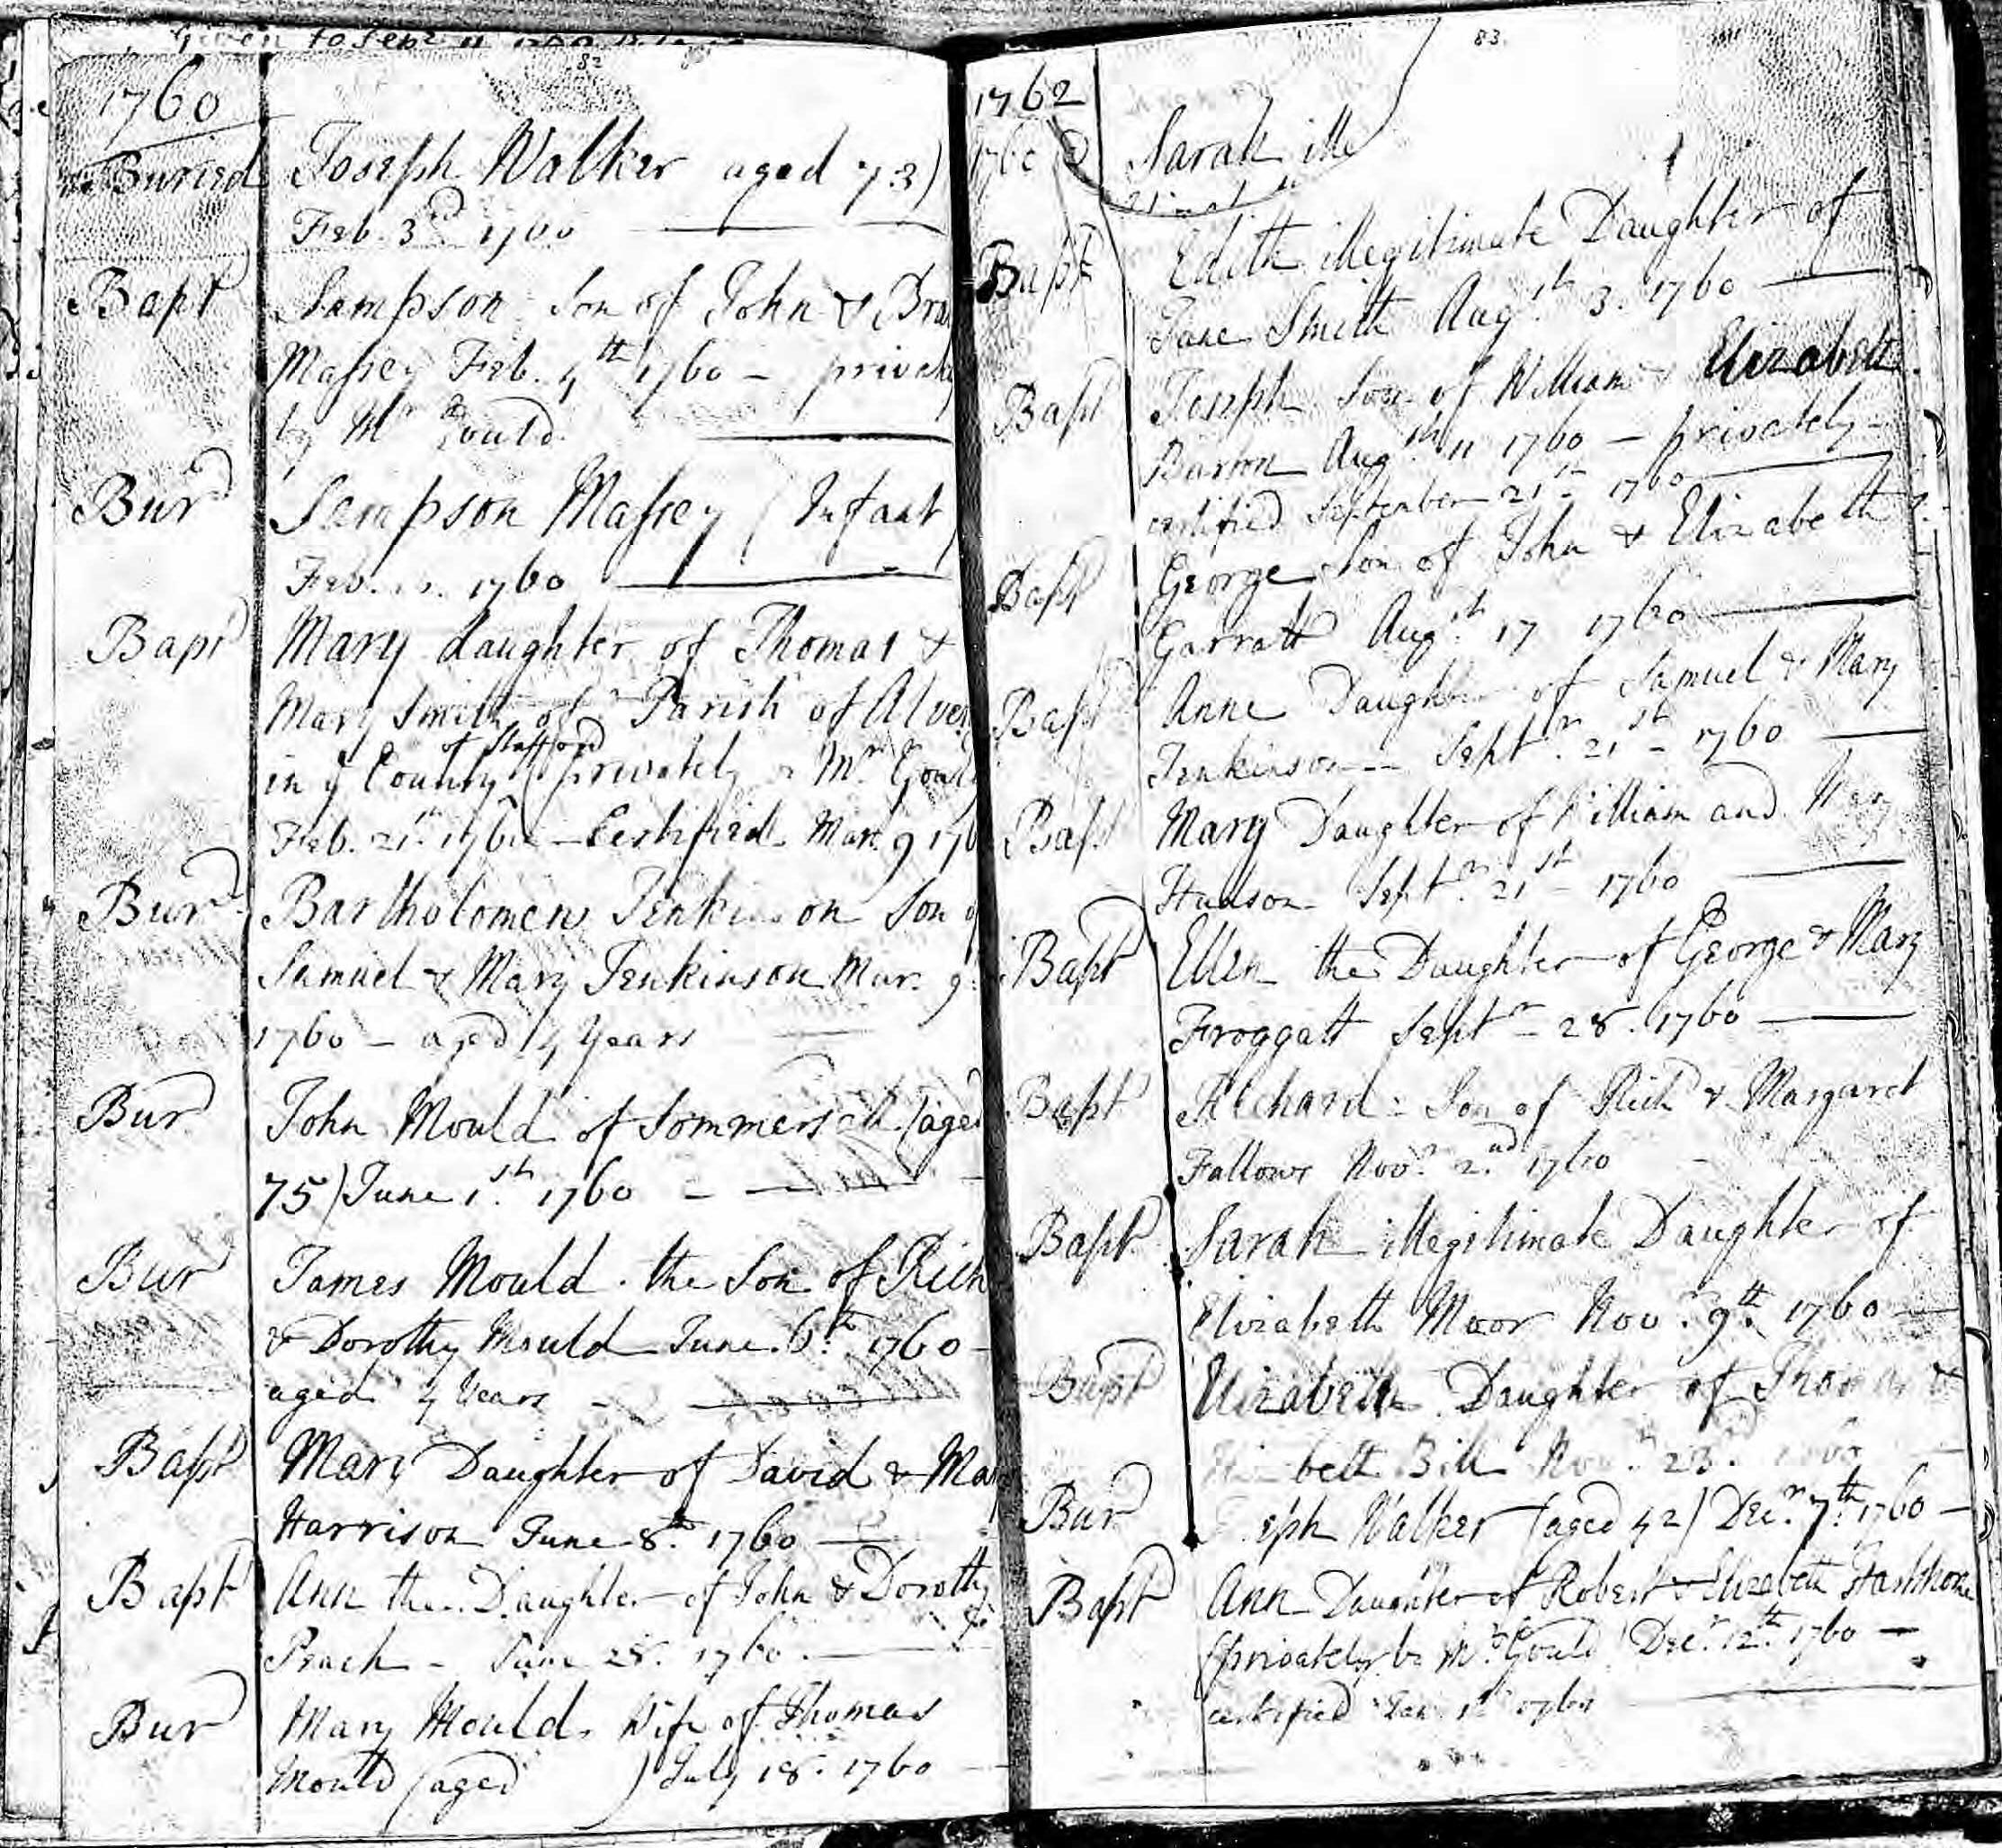 82
1760
Buried Joseph Walker aged 73)
Feb. 3rd 1760
Bapt Sampson Son of John & Bra
Massey Feb. 4th 1760 - privately
by Mr Gould
Burd Sampson Massey (Infant)
Feb. 1760
Bapt Mary daughter of Thomas &
Mary Smith of Parish of Alve
of Stafford
in ye County (privately Mr Gould
Feb. 21st 1760 - Certified Mar. 9 176
Burd Bartholomew Jenkinson Son of
Samuel & Mary Jenkinson Mar. 9
1760 - aged 4 Years
Burd John Mould of Sommersall (aged
75) June 1st 1760
Burd James Mould the Son of Rich
& Dorothy Mould June 6th 1760
aged 4 Years
Bapt Mary Daughter of David & Mary
Harrison June 8th 1760
Bapt Ann the Daughter of John & Dorothy
Peach - June 28. 1760
Bur Mary Mould Wife of Thomas
Mould (aged ) July 18. 1760
83
1762
1760 Sarah ille
Bapt Edith illegitimate Daughter of
Jane Smith Augt. 3. 1760
Bapt Joseph Son of William & Elizabeth
Barton Augth 11 1760 - privately -
certified September 21st 1760
Bapt George Son of John & Elizabeth
Garratt Augth 17 1760
Bapt Anne Daughter of Samuel & Mary
Jenkinson -- Septr. 21st - 1760
Bapt Mary Daughter of William and Mary
Hudson Septr. 21st - 1760
Bapt Ellen the Daughter of George & Mary
Froggatt Septr - 28. 1760
Bapt Richard - Son of Richd & Margaret
Fallows Novr. 2nd 1760
Bapt Sarah illegitimate Daughter of
Elizabeth Moor Novr. 9th. 1760
Bapt Elizabeth Daughter of Thomas &
beth Bill Nov. 23rd 1760
Burd eph Walker (aged 42) Decr. 7th. 1760 -
Bapt Ann Daughter of Robert & Elizabeth
(privately by Mr Gould) Decr 12th. 1760 -
certified Jan